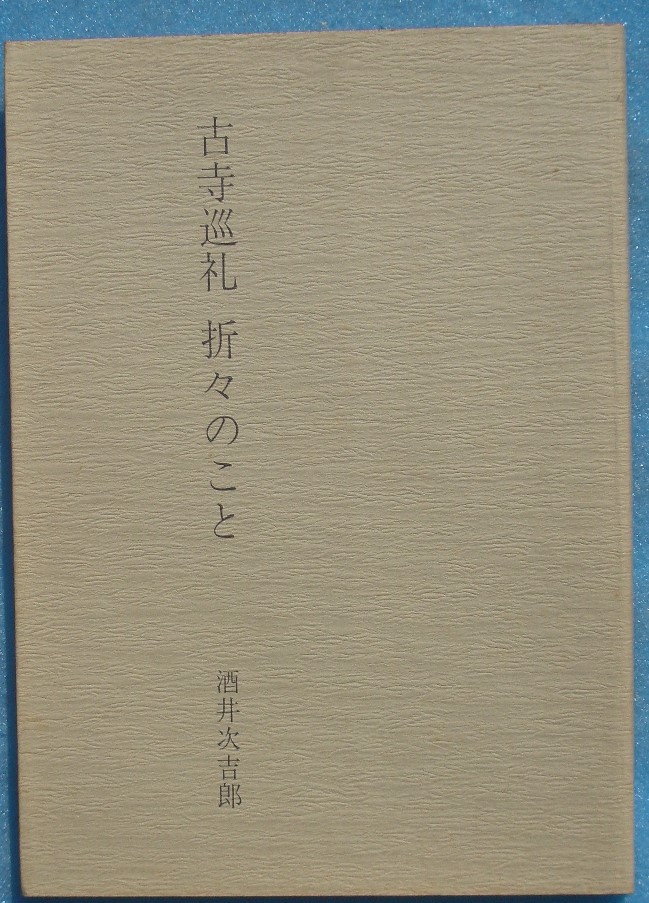 古寺巡礼 折々のこと
酒井次吉郎